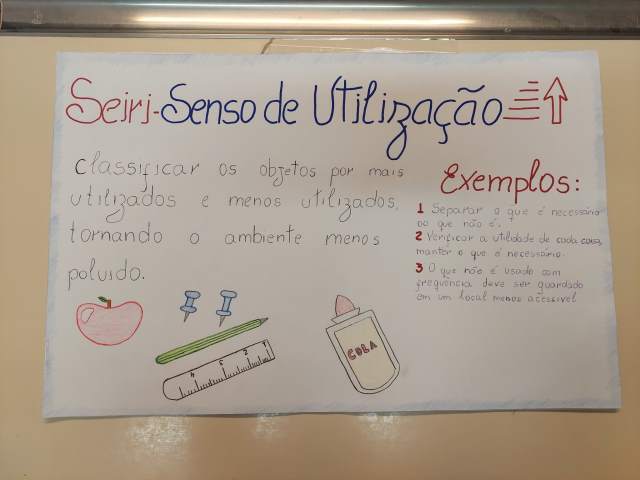 Seiri-Senso de Utilização
Classificar os objetos por mais
utilizados e menos utilizados,
tornando o ambiente menos
poluído.
Exemplos:
1 Separar o que é necessário
do que não é.
2 Verificar a utilidade de cada coisa,
manter o que é necessário.
3 O que não é usado com
frequência deve ser guardado
em um local menos acessível
COLA
4 6 2 1